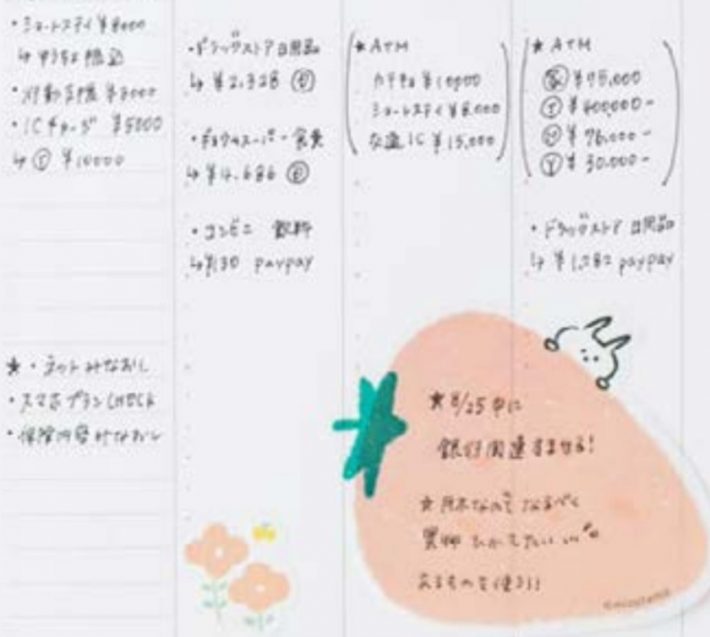 ・ショートステイ ¥8000
↳ ゆうちょ 振込
・ICチャージ ¥5000
↳ ¥10000
★・ネットみなおし
・スマホプランCHECK
・保険内容みなおし
・ドラッグストア 日用品
↳ ¥2,328
・ギョウムスーパー 食費
↳ ¥4,686
・コンビニ 飲料
↳ ¥130 paypay
★ATM
¥10000
ショートステイ ¥8,000
交通IC ¥15,000
★ATM
¥75,000
¥400,000-
¥76,000-
¥30,000-
・ドラッグストア 日用品
↳ ¥1,282 paypay
★8/25 中に
銀行関連すませる!
★月末なので なるべく
買物 ひかえたい
あるものを使う!!